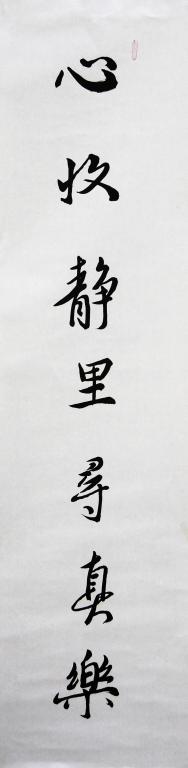 心收静里寻真樂